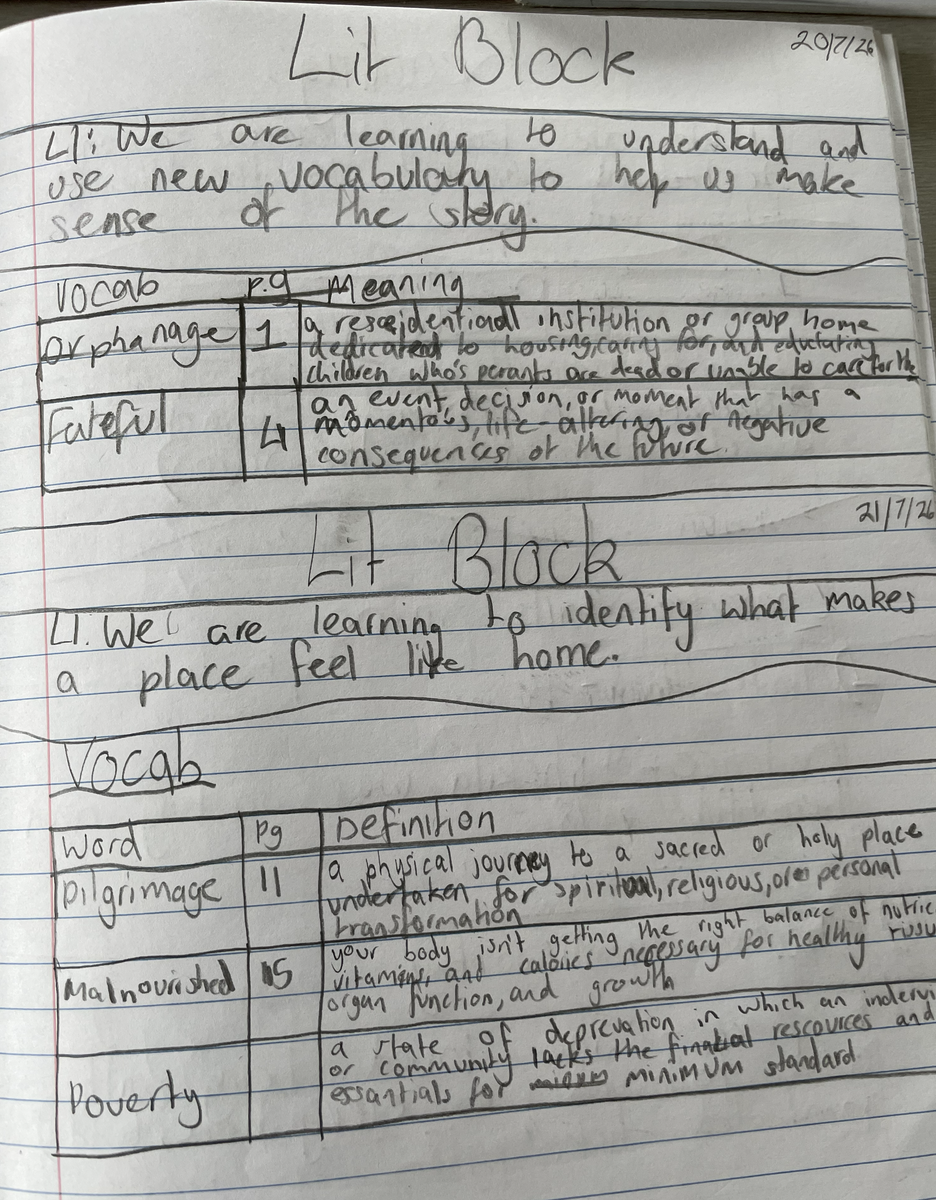 Lit Block 20/7/26
LI: We are learning to understand and
use new vocabulary to help us make
sense of the story.
Vocab p.g Meaning
orphanage 1 a residentional institution or group home
dedicated to housing, caring for, and educating
children who's perants are dead or unable to care for
Fateful 4 an event, decision, or moment that has a
momentous, life-altering, or negative
consequences of the future.
21/7/26
Lit Block
LI. We are learning to identify what makes
a place feel like home.
Vocab
Word Pg Definition
Pilgrimage 11 a physical journey to a sacred or holy place
undertaken for spiritual, religious, or personal
transformation
Malnourished 15 your body isn't getting the right balance of nutrie
vitamins, and calories necessary for healthy
organ function, and growth
Poverty a state of deprevation in which an indervi
or community lacks the resources and
essantials for minimum standard